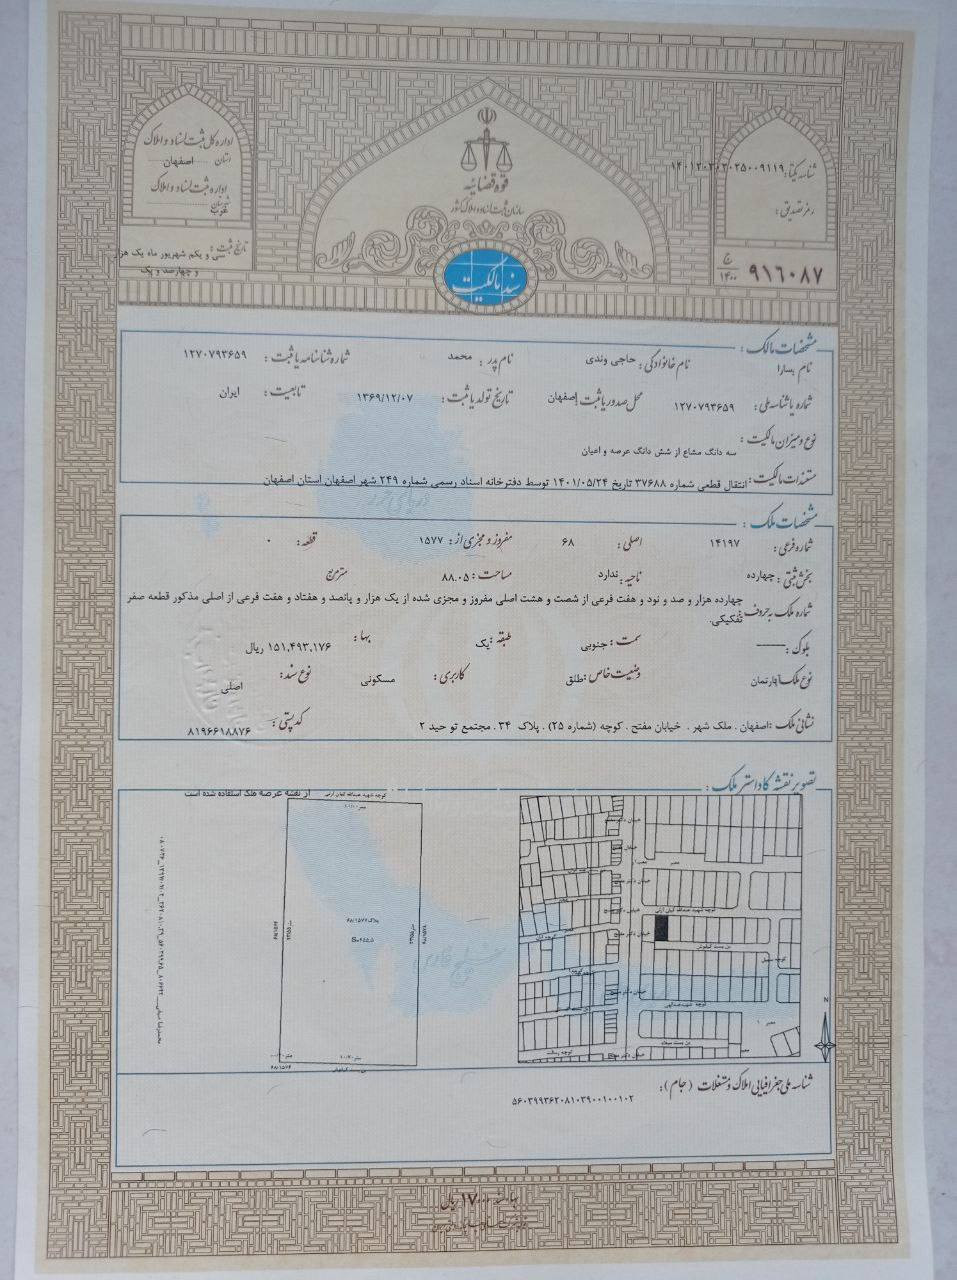 اداره کل ثبت اسناد و املاک
استان اصفهان
اداره ثبت اسناد و املاک
شهرستان غرب
تاریخ ثبت: سی و یکم شهریور ماه یک هزار
و چهارصد و یک
قوه قضائیه
سازمان ثبت اسناد و املاک کشور
سند مالکیت
شناسه یکتا: ۱۴۰۱۲۰۳۰۲۰۳۵۰۰۹۱۱۹
رمز تصدیق:
ج
۱۴۰۰
۹۱۶۰۸۷
مشخصات مالک:
نام یسارا نام خانوادگی: حاجی وندی نام پدر: محمد شماره شناسنامه یا ثبت: ۱۲۷۰۷۹۳۶۵۹
شماره یا شناسه ملی: ۱۲۷۰۷۹۳۶۵۹ محل صدور یا ثبت: اصفهان تاریخ تولد یا ثبت: ۱۳۶۹/۱۲/۰۷ تابعیت: ایران
نوع و میزان مالکیت: سه دانگ مشاع از شش دانگ عرصه و اعیان
مستندات مالکیت: انتقال قطعی شماره ۳۷۶۸۸ تاریخ ۱۴۰۱/۰۵/۲۴ توسط دفترخانه اسناد رسمی شماره ۲۴۹ شهر اصفهان استان اصفهان
دریای خزر
مشخصات ملک:
شماره فرعی: ۱۴۱۹۷ اصلی: ۶۸ مفروز و مجزی از: ۱۵۷۷ قطعه: ۰
بخش ثبتی: چهارده ناحیه: ندارد مساحت: ۸۸.۰۵ متر مربع
شماره ملک به حروف: چهارده هزار و صد و نود و هفت فرعی از شصت و هشت اصلی مفروز و مجزی شده از یک هزار و پانصد و هفتاد و هفت فرعی از اصلی مذکور قطعه صفر
تفکیکی.
بلوک: ـــــــ سمت: جنوبی طبقه: یک بها: ۱۵۱,۴۹۳,۱۷۶ ریال
نوع ملک: آپارتمان وضعیت خاص: طلق کاربری: مسکونی نوع سند: اصلی
نشانی ملک: اصفهان . ملک شهر . خیابان مفتح . کوچه (شماره ۲۵) . پلاک ۳۴ . مجتمع توحید ۲ کد پستی: ۸۱۹۶۶۱۸۸۷۶
تصویر نقشه کاداستر ملک:
از نقشه عرصه ملک استفاده شده است
کوچه شهید عبدالله کیان ارثی
پلاک ۶۸/۱۵۷۷
۶۸/۱۵۷۶
۶۸/۱۵۷۸
بن بست کیانوش
خلیج فارس
کوچه شهید عبدالله کیان ارثی
بن بست کیانوش
کوچه رسالت
N
شناسه ملی جغرافیایی املاک و مستغلات (جام):
۵۶۰۳۹۹۳۶۲۰۸۱۰۳۹۰۰۱۰۰۱۰۲